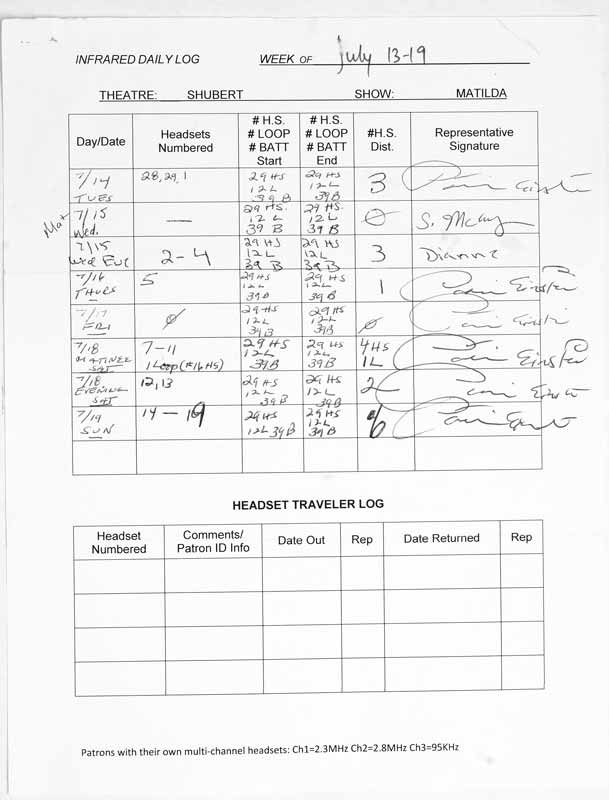 INFRARED DAILY LOG WEEK OF July 13-19
THEATRE: SHUBERT SHOW: MATILDA
Day/Date
Headsets
Numbered
# H.S.
# LOOP
# BATT
Start
# H.S.
# LOOP
# BATT
End
#H.S.
Dist.
Representative
Signature
7/14
TUES
28, 29, 1
29 HS
12 L
39 B
29 HS
12 L
39 B
3
Mat 7/15
Wed.
—
29 HS.
12 L
39 B
29 HS
12 L
39 B
0
7/15
Wed Eve
2-4
29 HS
12L
39 B
29 HS
12L
39 B
3
Dianne
7/16
THURS
5
29 HS
12L
39B
29 HS
12L
39 B
1
7/17
FRI
Ø
29 HS
12L
39B
29HS
12L
39B
Ø
7/18
MATINEE
SAT
7-11
1 Loop (#16 HS)
29 HS
12L
39B
29 HS
12L
39B
4HS
1L
7/18
EVENING
SAT
12, 13
29 HS
12L
39B
29 HS
12L
39B
2
7/19
SUN
14 - 19
29HS
12L 39B
29 HS
12L
39B
6
HEADSET TRAVELER LOG
Headset
Numbered
Comments/
Patron ID Info
Date Out
Rep
Date Returned
Rep
Patrons with their own multi-channel headsets: Ch1=2.3MHz Ch2=2.8MHz Ch3=95KHz